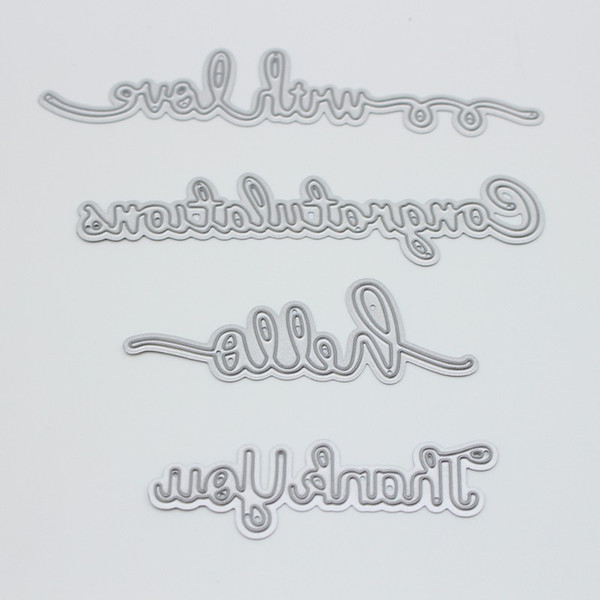 with love
Congratulations
hello
Thank You